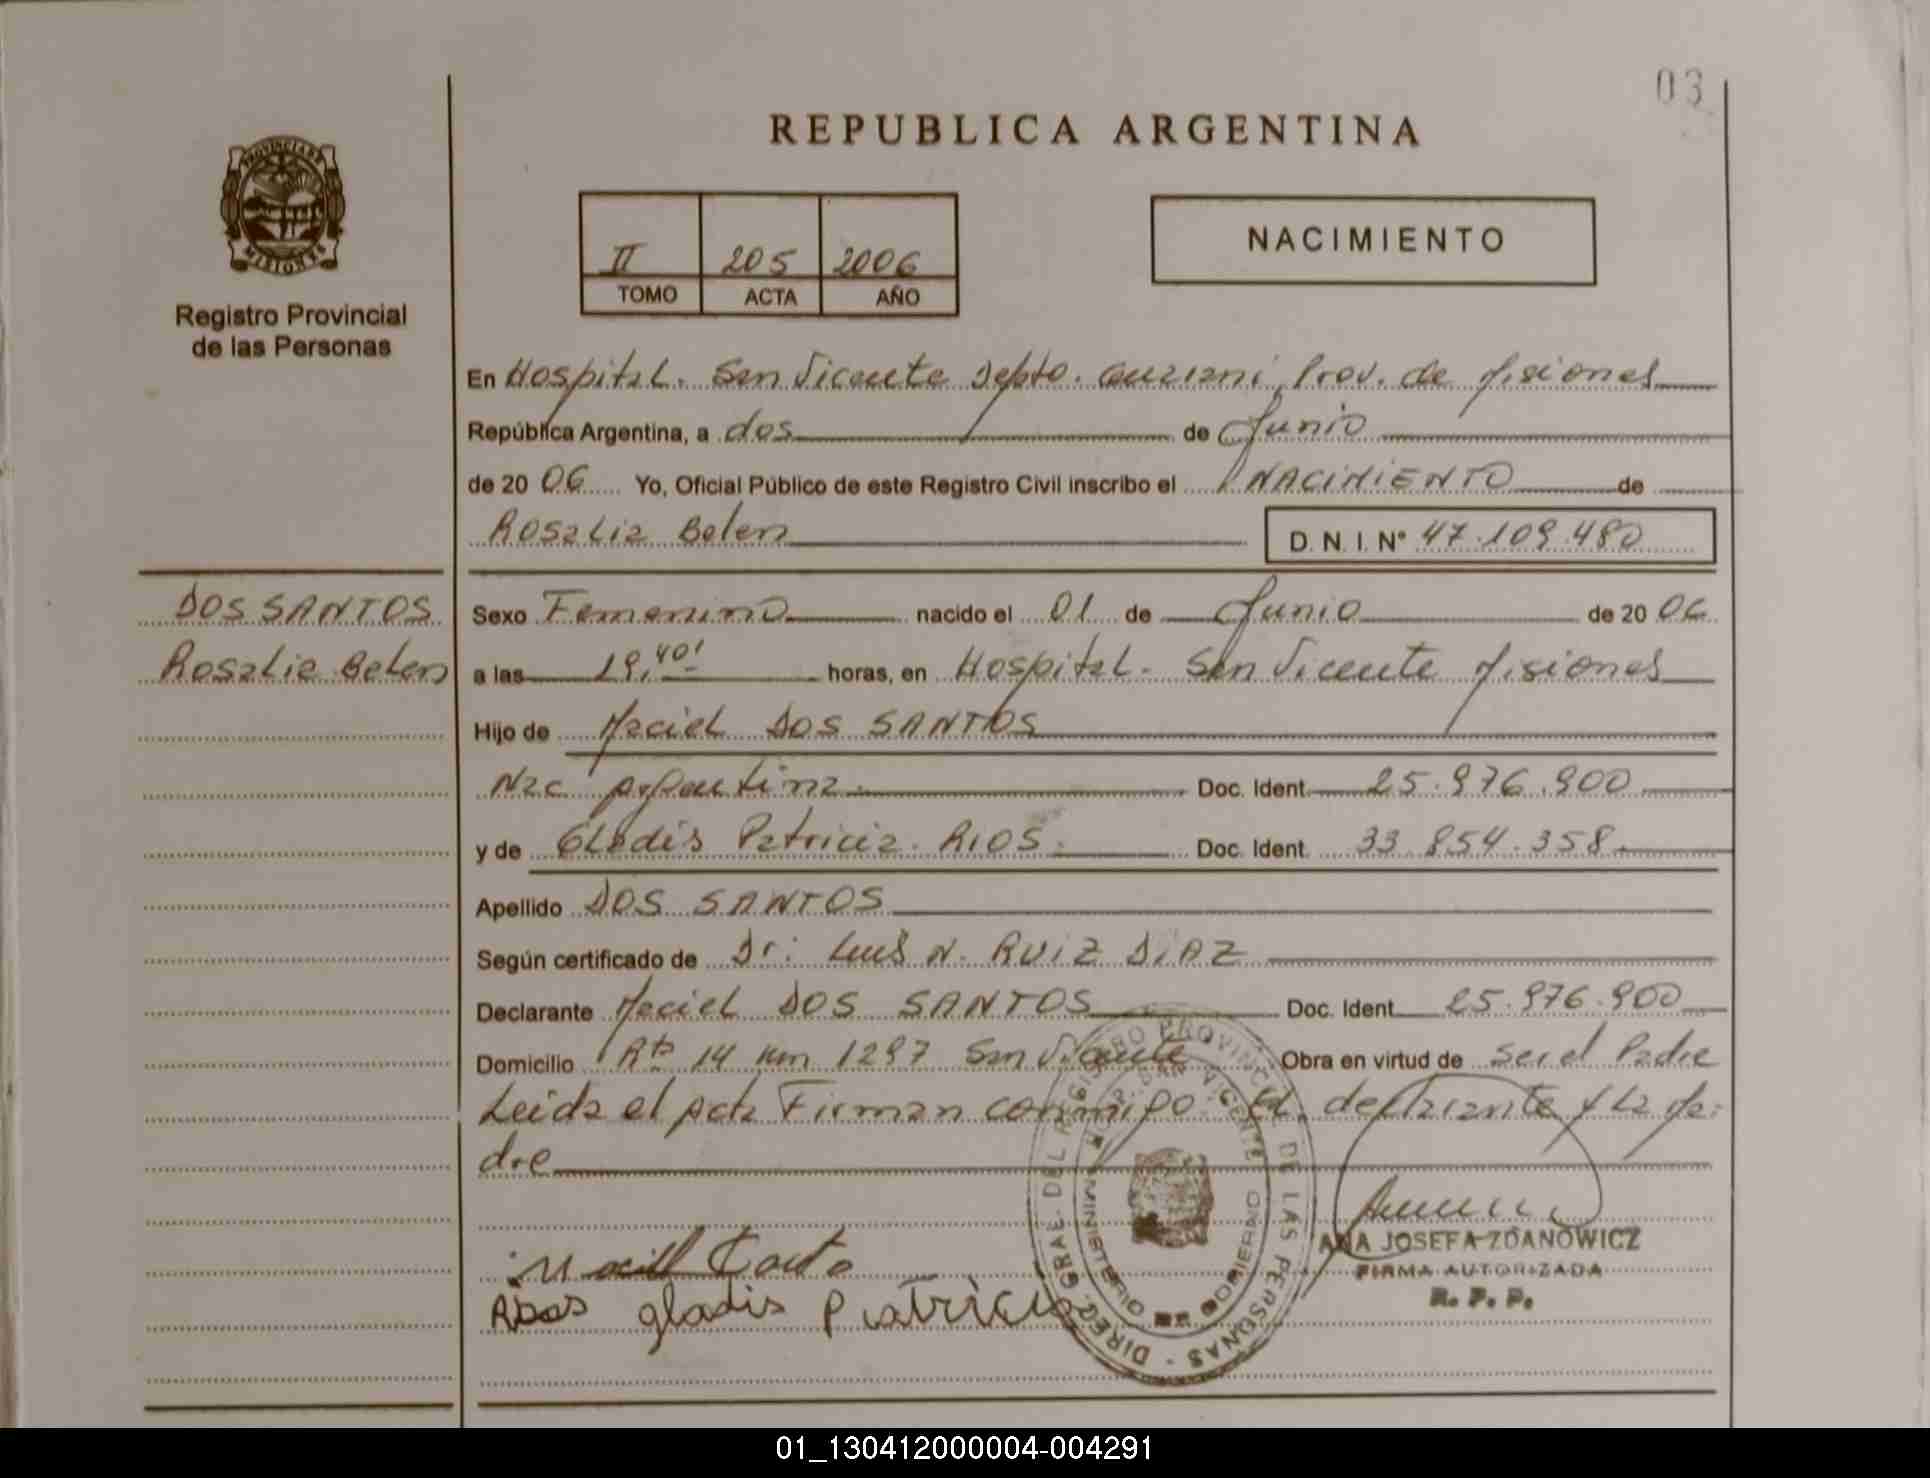 03
REPUBLICA ARGENTINA
PROVINCIA DE MISIONES
Registro Provincial
de las Personas
II 205 2006
TOMO ACTA AÑO
NACIMIENTO
En Hospital. San Vicente Depto. Guarani, Prov. de Misiones
República Argentina, a dos de Junio
de 2006 Yo, Oficial Público de este Registro Civil inscribo el NACIMIENTO de
Rosalia Belen D.N.I. Nº 47.109.480
DOS SANTOS
Rosalia Belen
Sexo Femenino nacido el 01 de Junio de 2006
a las 19,40' horas, en Hospital. San Vicente Misiones
Hijo de Maciel DOS SANTOS
Nac Argentina. Doc. Ident. 25.976.900
y de Gladis Patricia. RIOS. Doc. Ident. 33.854.358.
Apellido DOS SANTOS
Según certificado de Dr: Luis N. RUIZ DIAZ
Declarante Maciel DOS SANTOS Doc. Ident. 25.976.900
Domicilio Rta 14 Km 1297 San Vicente Obra en virtud de ser el Padre
Leida el Acta Firman conmigo El declarante y La Ma-
dre
DIREC. GRAL. DEL REGISTRO PROVINCIAL DE LAS PERSONAS
HOSP. SAN VICENTE
MINISTERIO DE GOBIERNO
ANA JOSEFA ZDANOWICZ
FIRMA AUTORIZADA
R. P. P.
Rios gladis Patricia
01_130412000004-004291